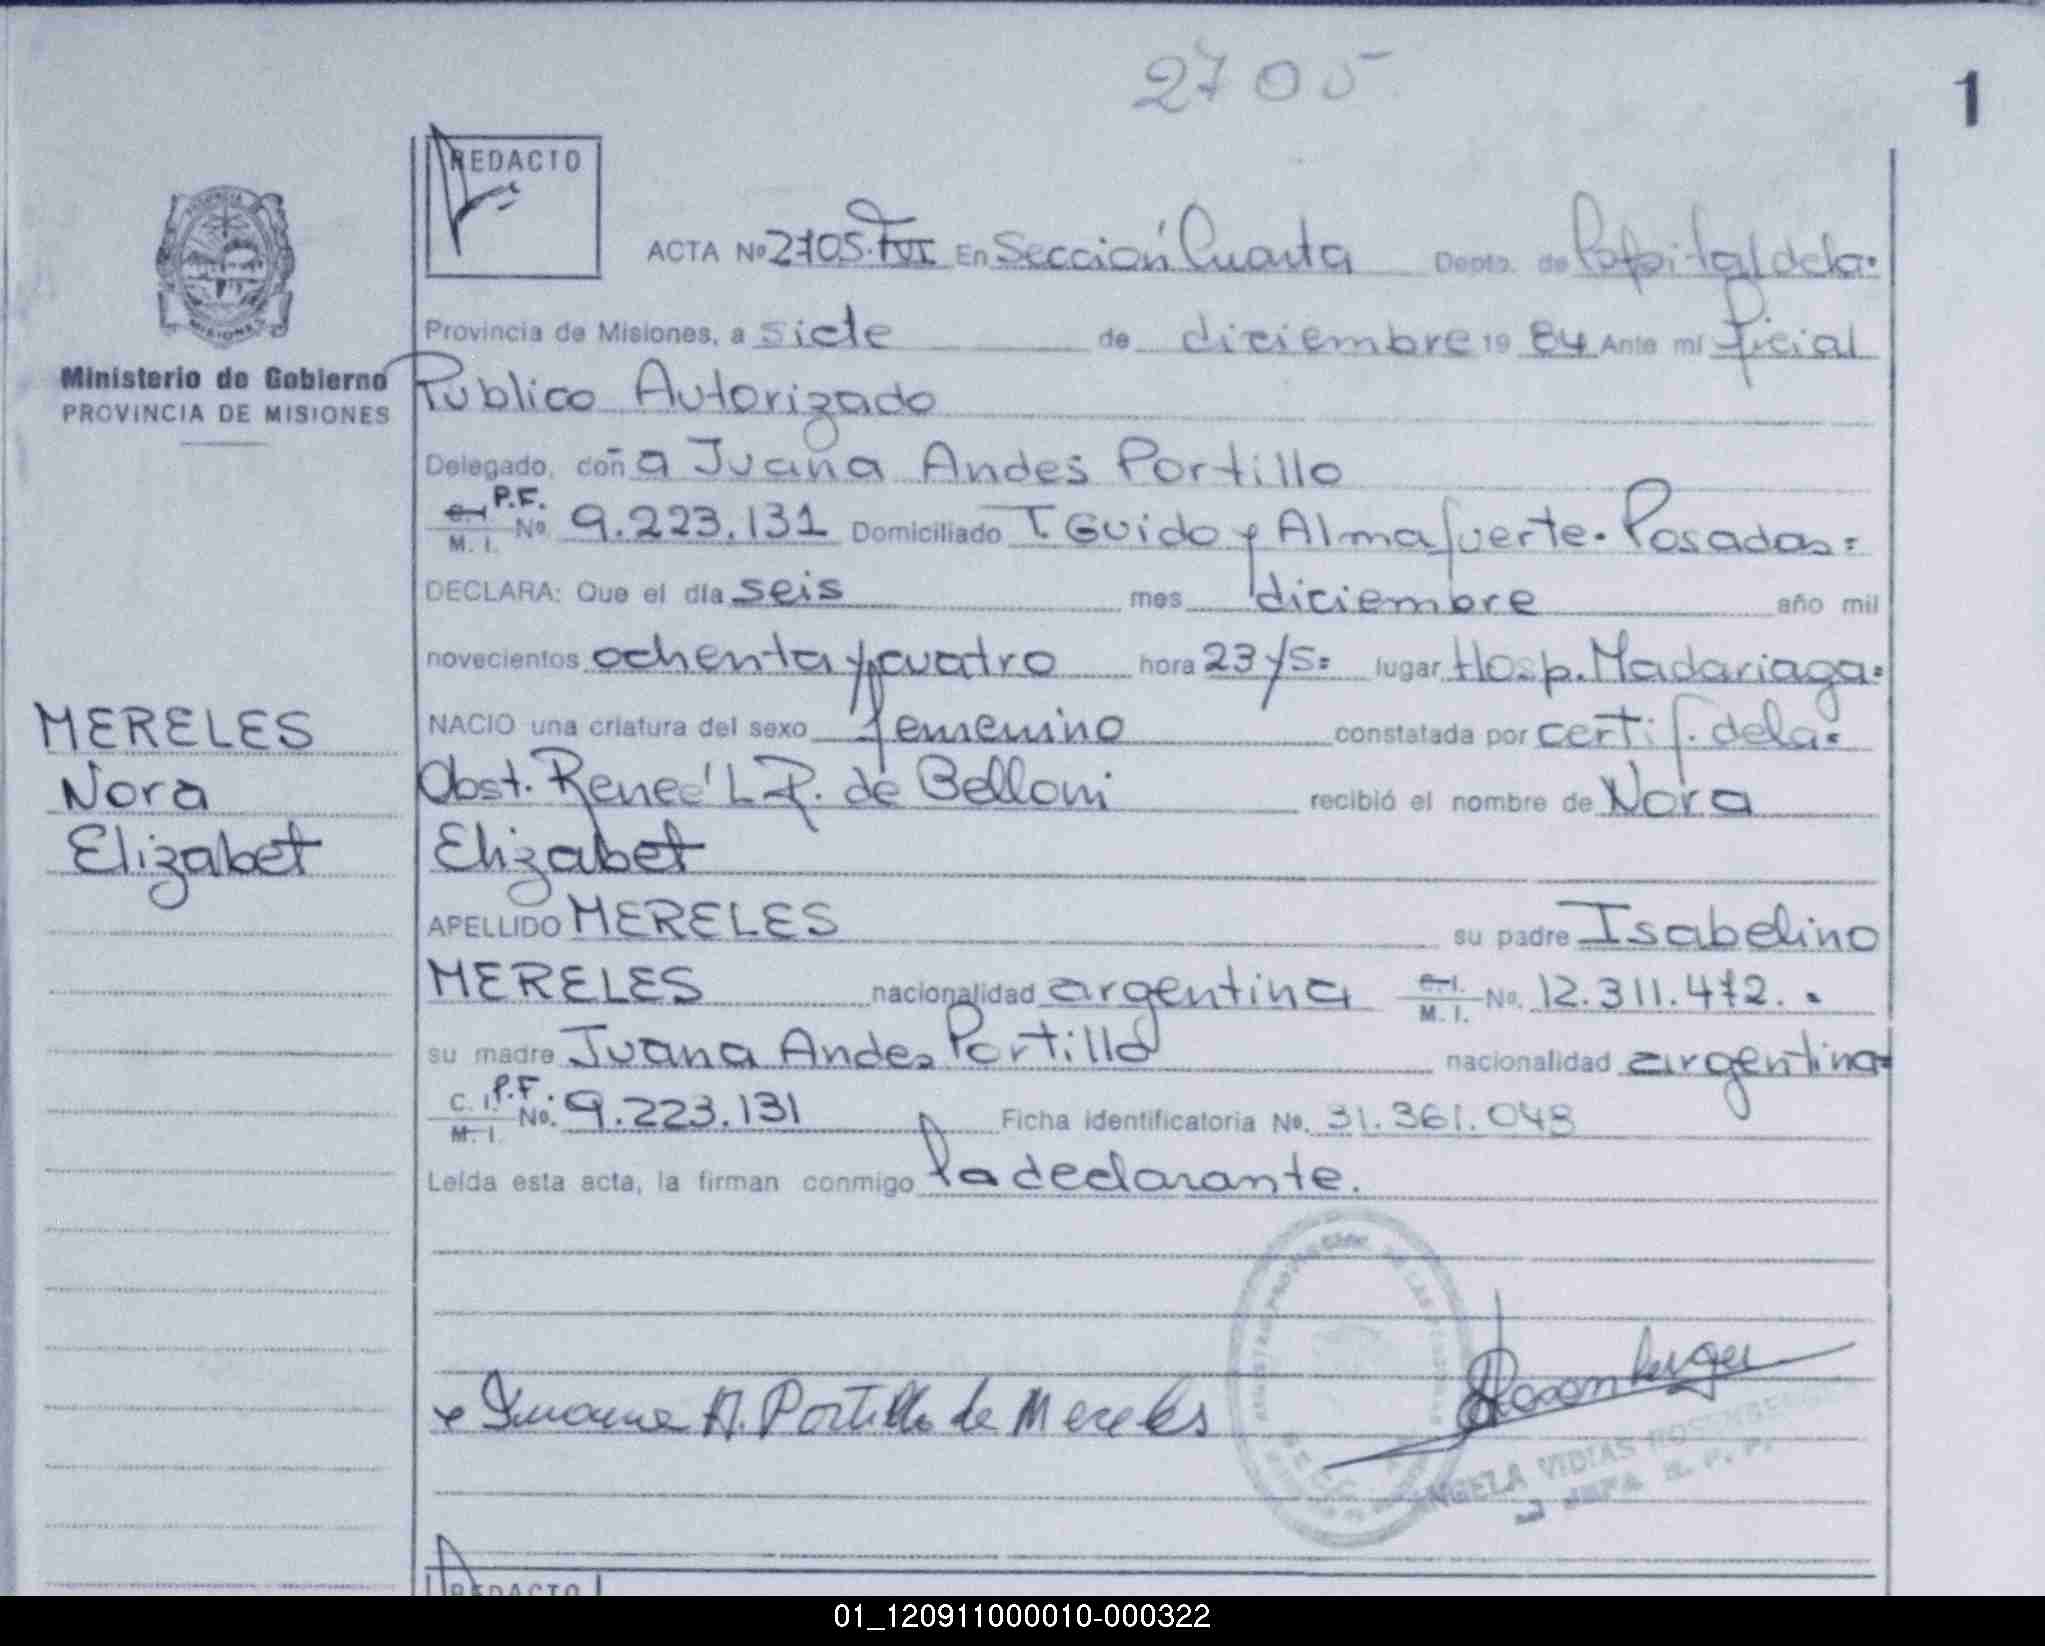 2705
1
REDACTO
ACTA Nº 2705. T VI En Sección Cuarta Depto. de Capital de la=
Provincia de Misiones, a siete de diciembre 19 84 Ante mí Oficial
Ministerio de Gobierno
PROVINCIA DE MISIONES
Publico Autorizado
Delegado, doña Juana Andes Portillo
C. I. P.F. M. I. Nº 9.223.131 Domiciliado T. Guido y Almafuerte. Posadas=
DECLARA: Que el día seis mes diciembre año mil
novecientos ochenta y cuatro hora 23 y 5= lugar Hosp. Madariaga=
MERELES
Nora
Elizabet
NACIO una criatura del sexo femenino constatada por certif. de la=
Obst. Reneé L R. de Belloni recibió el nombre de Nora
Elizabet
APELLIDO MERELES su padre Isabelino
MERELES nacionalidad argentina C. I. M. I. Nº. 12.311.472. =
su madre Juana Andes Portillo nacionalidad argentina=
C. I. P.F. M. I. Nº. 9.223.131 Ficha identificatoria Nº. 31.361.048
Leída esta acta, la firman conmigo la declarante.
x Juana A. Portillo de Mereles
Rosemberger
ANGELA VIDIAS ROSEMBERGER
JEFA R. P. P.
REDACTO
01_120911000010-000322